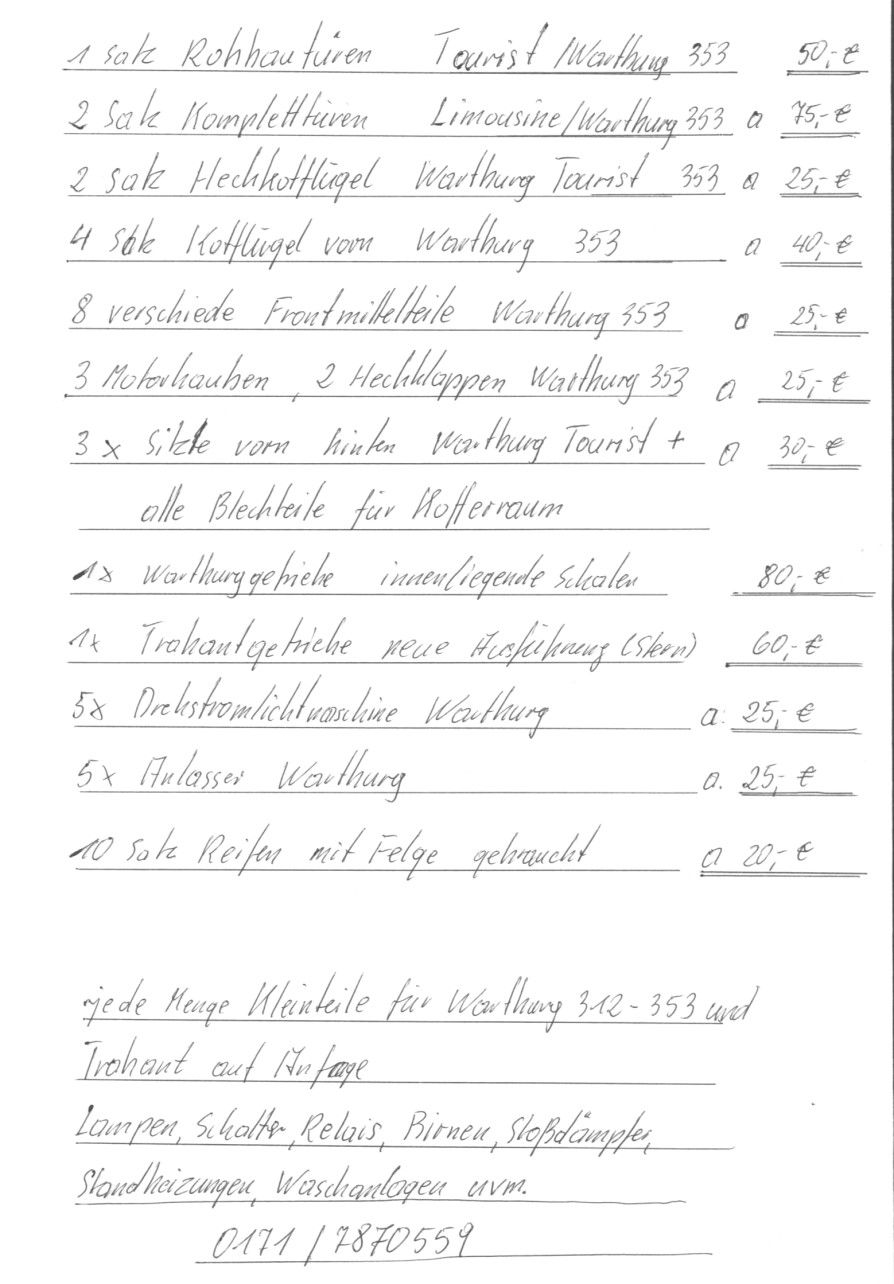 1 Satz Rohbautüren Tourist/Wartburg 353 50,- €
2 Satz Kompletttüren Limousine/Wartburg 353 a 75,- €
2 Satz Heckkotflügel Wartburg Tourist 353 a 25,- €
4 Stk Kotflügel vorn Wartburg 353 a 40,- €
8 verschiede Frontmittelteile Wartburg 353 a 25,- €
3 Motorhauben, 2 Heckklappen Wartburg 353 a 25,- €
3 x Sitze vorn hinten Wartburg Tourist + a 30,- €
alle Blechteile für Kofferraum
1x Wartburggetriebe innenliegende Schalen 80,- €
1x Trabantgetriebe neue Ausführung (Stern) 60,- €
5x Drehstromlichtmaschine Wartburg a: 25,- €
5x Anlasser Wartburg a. 25,- €
10 Satz Reifen mit Felge gebraucht a 20,- €
jede Menge Kleinteile für Wartburg 312-353 und
Trabant auf Anfage
Lampen, Schalter, Relais, Birnen, Stoßdämpfer,
Standheizungen, Waschanlagen uvm.
0171 / 7870559